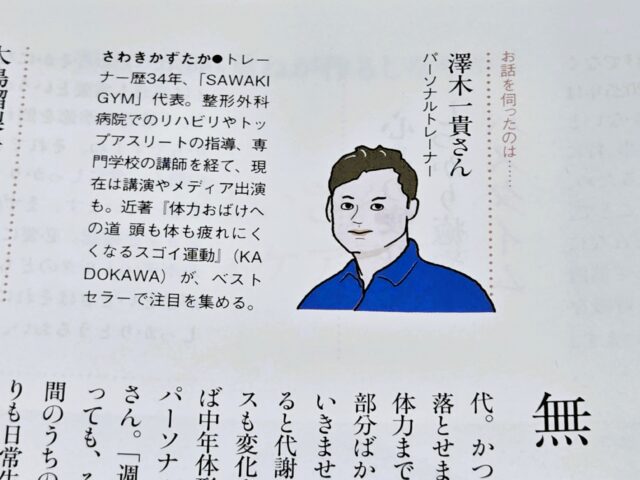 お話を伺ったのは……
澤木一貴さん
パーソナルトレーナー
さわきかずたか●トレー
ナー歴34年、「SAWAKI
GYM」代表。整形外科
病院でのリハビリやトッ
プアスリートの指導、専
門学校の講師を経て、現
在は講演やメディア出演
も。近著『体力おばけへ
の道 頭も体も疲れにく
くなるスゴイ運動』（KA
DOKAWA）が、ベスト
セラーで注目を集める。
無
代。かつ
落とせま
体力まで
部分ばか
いきませ
ると代謝
スも変化
ば中年体形
パーソナ
さん。「週
っても、
間のうちの
りも日常生